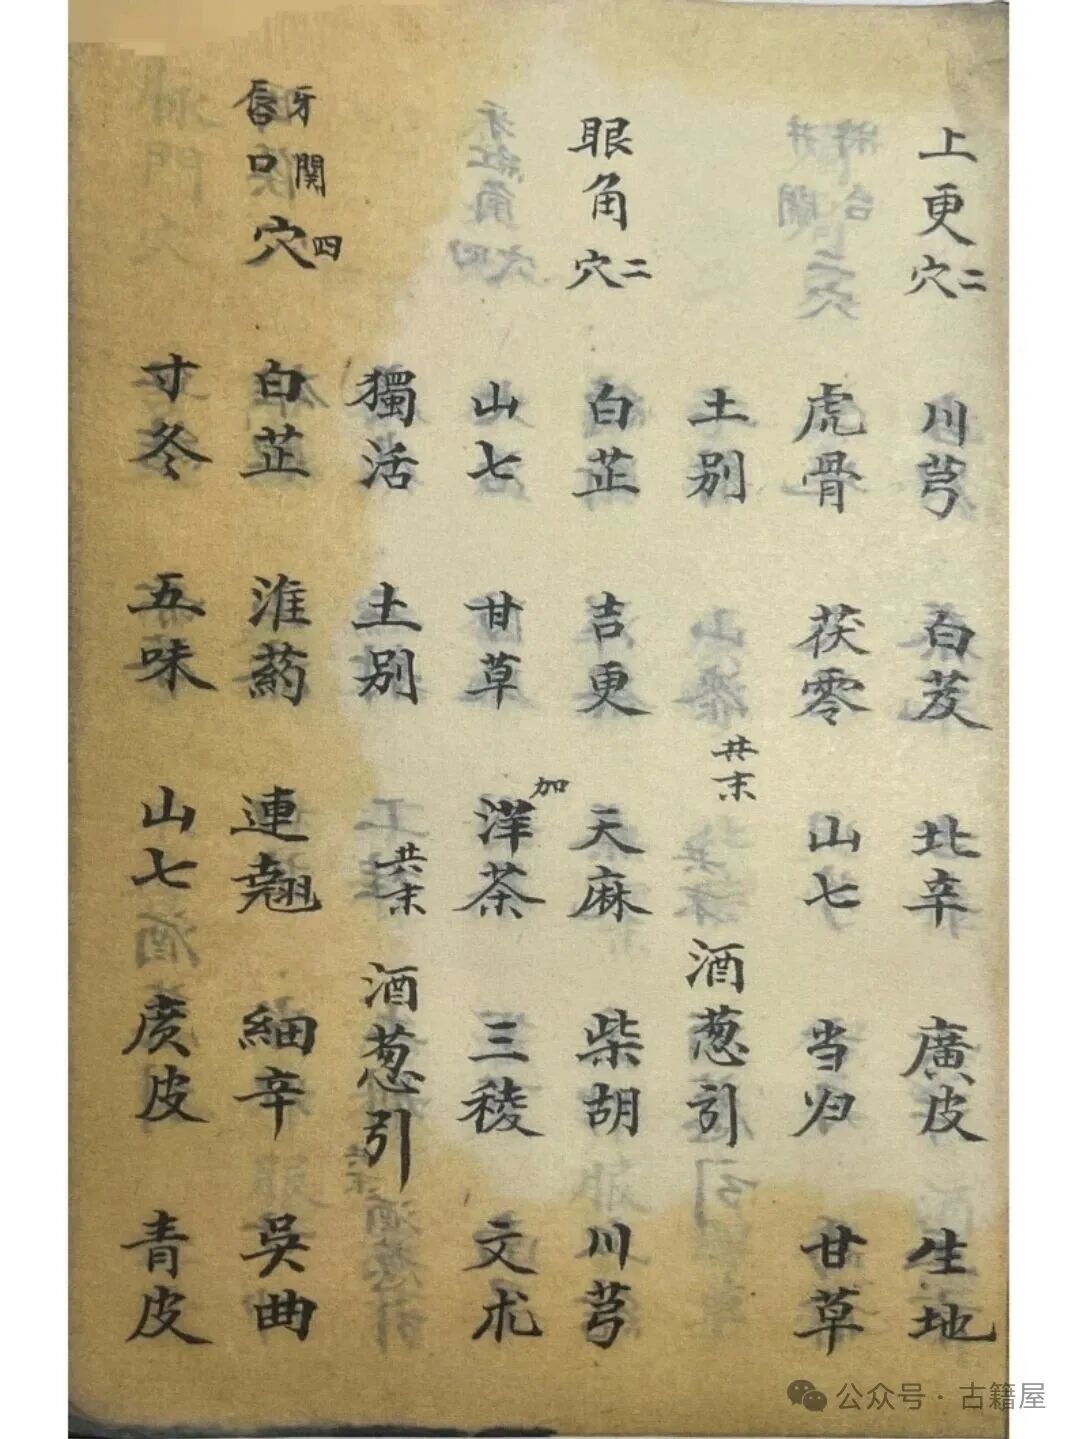 上更穴二 川芎 白芨 北辛 廣皮 生地
虎骨 茯零 山七 当归 甘草
土别 共末 酒葱引
眼角穴二 白芷 吉更 天麻 柴胡 川芎
山七 甘草 加洋茶 三稜 文朮
獨活 土别 共末 酒葱引
牙關唇口穴四 白芷 淮药 連翹 細辛 吳曲
寸冬 五味 山七 庹皮 青皮
公众号·古籍屋